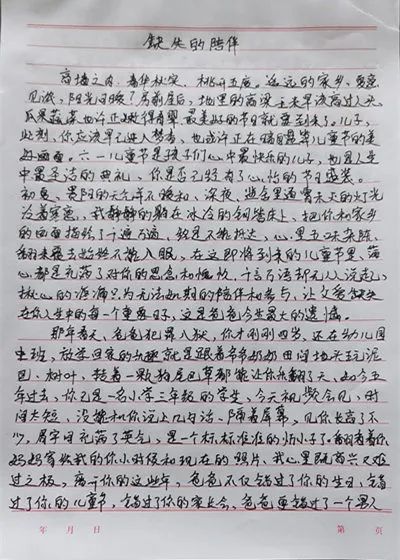 缺失的陪伴
高墙之内,春华秋实,桃开五度。遥远的家乡,
见诚,阳光日暖?房前屋后,地里的高粱玉米早该高过人头,
瓜果蔬菜也许正嫩得有劲,最美好的节日就要到来了。儿子,
此刻,你应该早已进入梦香,也或许正在睡目里等儿童节的美
好画面。六一儿童节是孩子们心中最快乐的儿子,也是人生
中最圣洁的典礼,你是否已经有了心怡的节日盛装。
初夏,贵阳的天气并不暖和,深夜,监舍里通宵未灭的灯光
泛着寒意,我静静的躺在冰冷的钢管床上,把你和家乡
的画面描绘了一遍万遍,就是不能抵达,心里五味杂陈,
翻来覆去始终不能入眠,在这即将到来的儿童节里,满
心都是充满了对你的思念和愧疚,千言万语却无从说起,
揪心的疼痛只为无法如期的陪伴和参与,让父爱缺失
在你人生中的每一个重要日子,这是爸爸今生最大的遗憾。
那年春天,爸爸犯罪入狱,你才刚刚四岁,还在幼儿园
中班,放学回家的乐趣就是跟着爷爷奶奶田间地头玩泥
巴、树叶,提着一颗狗尾巴草都能让你乐翻了天,如今五
年过去,你已是一名小学三年级的学生,今天视频会见,时
间太短,没能和你说上几句话,隔着屏幕,见你长高了不
少,眉宇间充满了英气,是一个标标准准的小子了。翻看着你
妈妈寄给我的你小时候和现在的照片,我心里既高兴又难
过之极,离开你的这些年,爸爸不仅错过了你的生日,错
过了你的儿童节,错过了你的家长会,爸爸更错过了一个男人
年 月 日
第 页